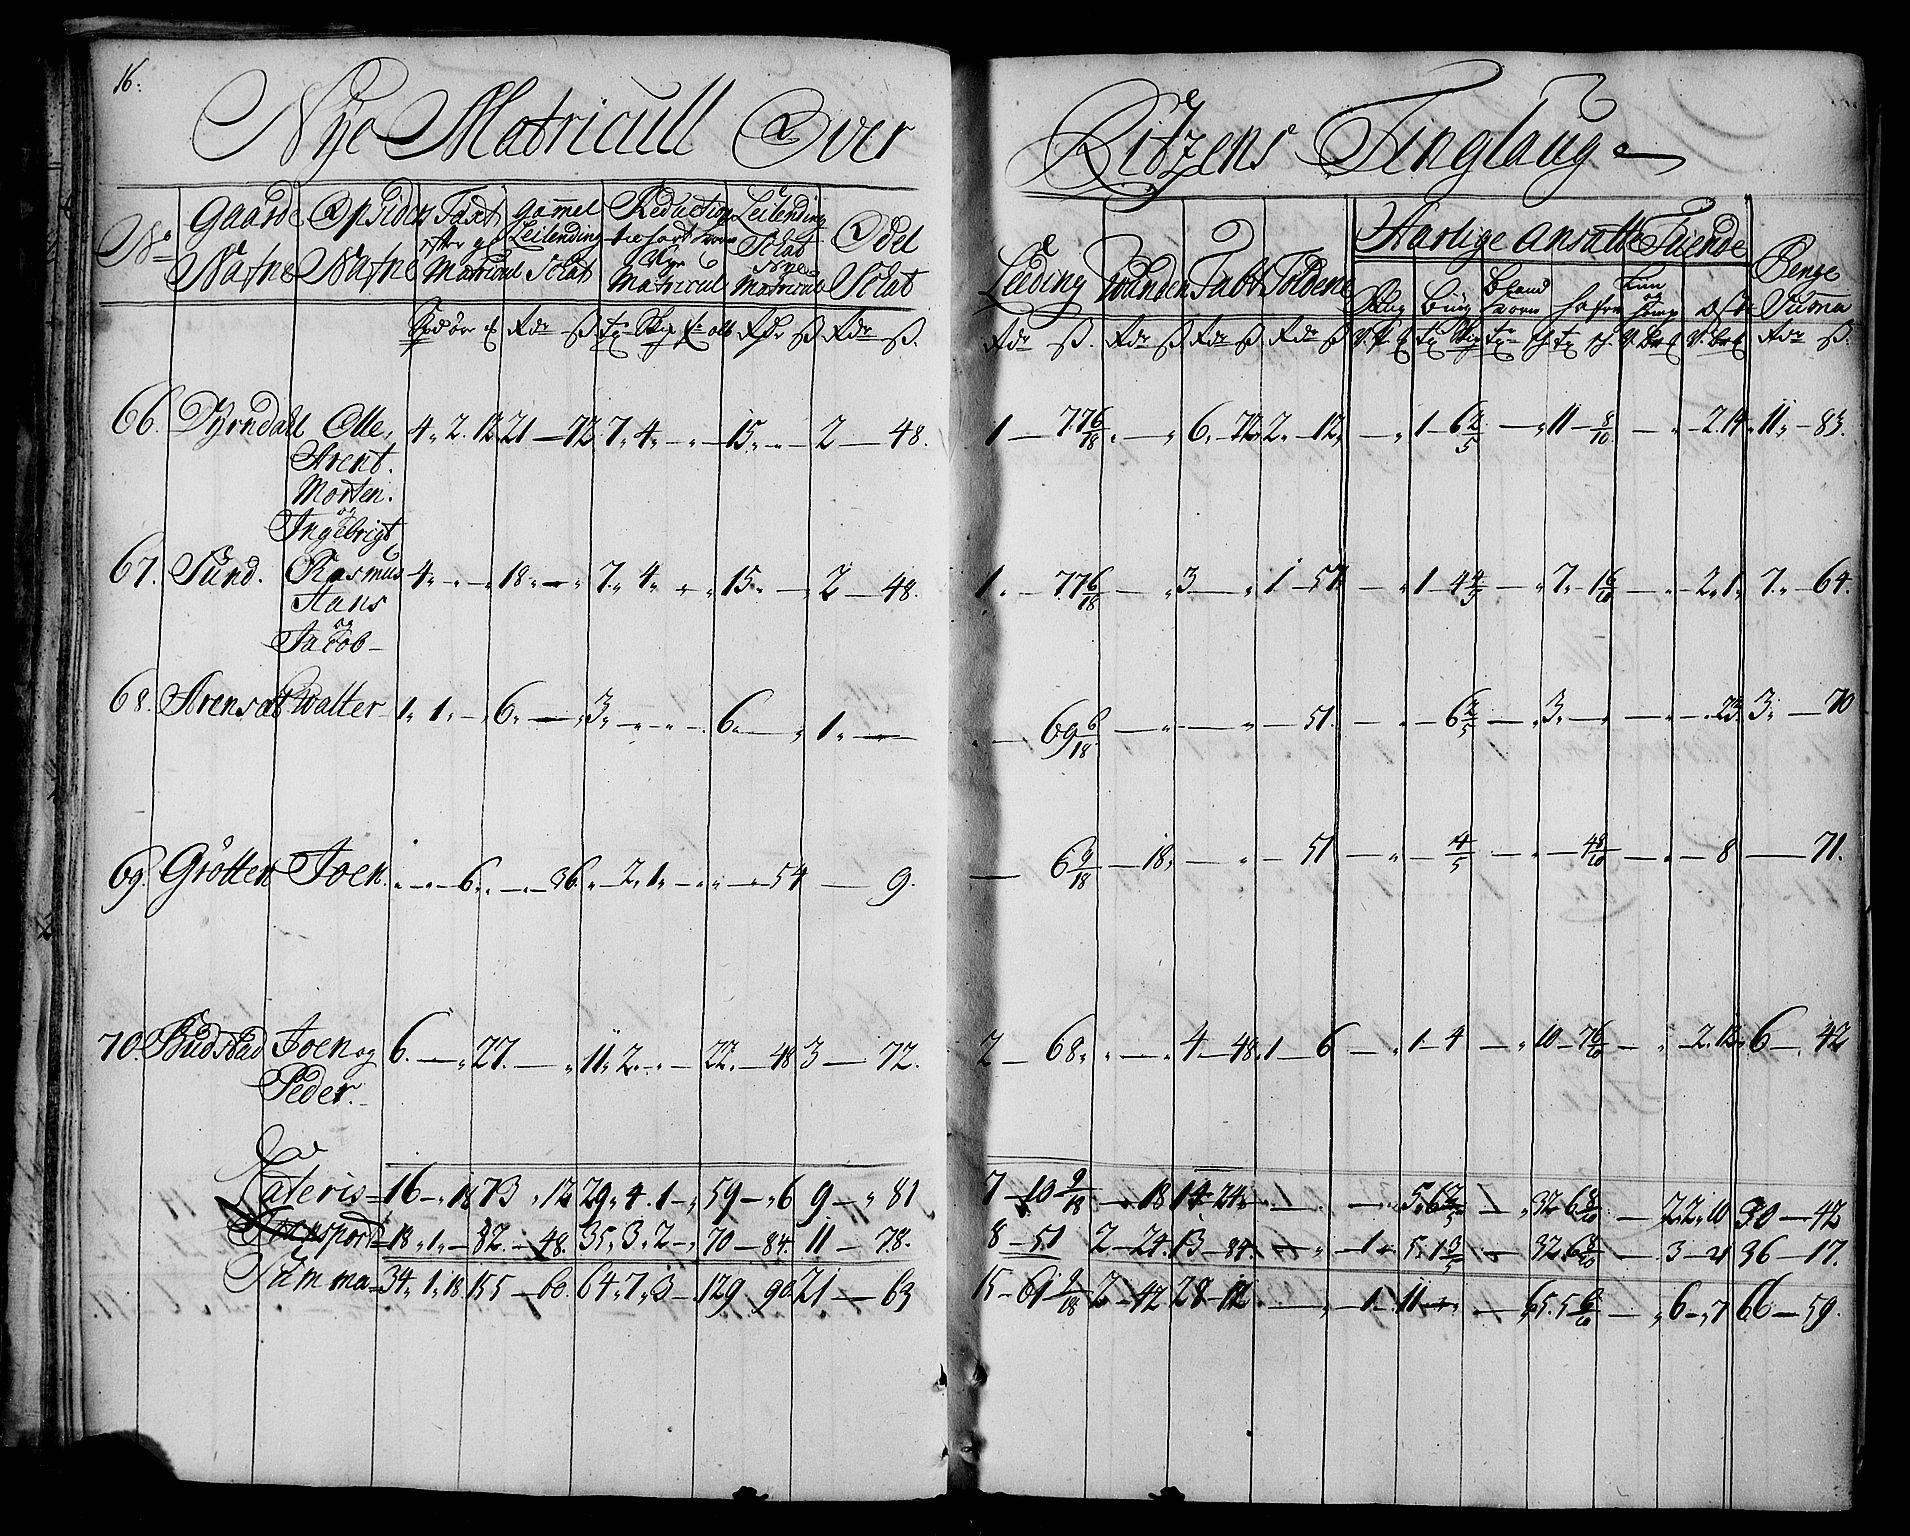 16.
Nye Matricull Over Ritzens Tinglaug
No Gaards Nafne Opsiders Nafne Taxt efter ga Matricul gammel Leilending Schat Reduction Nye Matricul Leilending Schat Nye Matricul Odel Schat Leeding Toldene Aarlige ansatte Tiende Penge Suma
66. Dyrndall Olle, 4 2. 12 21 - 72 7 4 15 2 - 48. 1 - 77 6/18 6. 72 2 - 12 1 6 2/5 11 - 8/10 2. 14 11 - 83.
Arent.
Morten.
og
Ingebrigt
67. Sund. Rasmus 4 18 7 4 15 2 - 48. 1 - 77 6/18 3 1 - 57 1 4 4/5 7 1 6/10 2. 1 7 - 64.
Hans
og
Jacob
68. Arensæt Walter 1 1 6 3 6 1 69 6/18 51. 6 2/5 3 23 3 - 70
69. Grötten Joen. 6 36 2 1 54 9. 6 9/18 18 51 4/5 4 8/10 8 71.
70. Budstad Joen og 6. 27. 11 2. 22. 48 3 - 72. 2 - 68 4 - 48 1 - 6 1 - 4 10 - 7 6/10 2. 13 6 - 42
Peder.
Lateris 16 - 18 73 12 29 4. 1 59 - 6 9 - 81 7 - 10 9/18 18 14 - 24 5 6 2/5 32 6 8/10 2. 2. 10 30 - 42
Transport 18 1 - 82 - 48. 35 3 2 70 - 84. 11 - 78. 8 - 51 2 - 24. 13 - 84. 1 5. 1 3/5 32 6 8/10 3 - 21 36 - 17.
Summa 34 1 18 155 - 60. 64 7 3 129 90 21 - 63 15 - 61 9/18 2 - 42 28 - 12 1 11 65. 5 6/10 6 - 7 66 - 59.